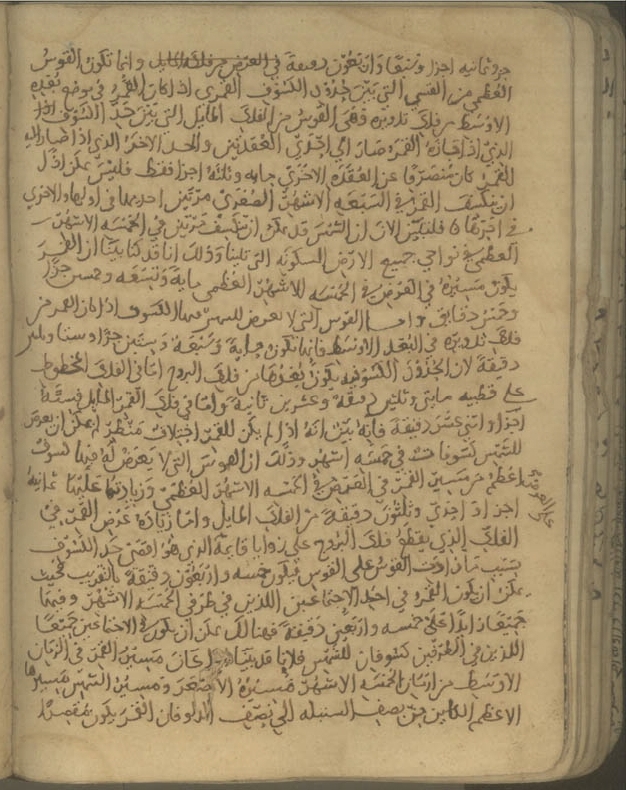 جزو ثمانيه اجزا وتسعا وان تكون دقيقة في العرض من فلكه المايل وانما تكون القوس
العظمي من القسي التي بين حدود الكسوف القمري اذا كان القمر في موضع بعده
الاوسط من فلك تدويره فهي القوس من الفلك المايل التي بين حد الكسوف
الذي اذا جازه القمر صار الي احدي العقدتين والحد الاخر الذي اذا صار اليه
القمر كان منصرفا عن العقدة الاخري مايه وثلثه اجزا فقط فليس يمكن اذا
ان ينكسف القمر في السبعه الاشهر الصغري مرتين احديهما في اولها والاخري
في اخرها فلنبين الان ان الشمس قد يمكن ان تنكسف مرتين في الخمسه الاشهر
العظمي في نواحي جميع الارض المسكونه التي تلينا وذلك انا قد كنا بينا ان القمر
يكون مسيره في العرض في الخمسه الاشهر العظمي مايه وتسعه وخمسين جزا
وخمس دقايق واما القوس التي لا يعرض للشمس فيها الكسوف اذا كان القمر من
فلك تدويره في البعد الاوسط فانها تكون مايه وسبعه وستين جزا وستا وثلثين
دقيقة لان الحدود الكسوفيه يكون بعدها من فلك البروج اما في الفلك المخطوط
علي قطبيه مايتي وثلثين دقيقة وعشرين ثانية واما في فلك القمر المايل فستة
اجزا واثني عشر دقيقة فانه بين انه اذا لم يكن للقمر اختلاف منظر لم يمكن ان يعرض
للشمس كسوفات في خمسه اشهر وذلك ان القوس التي لا يعرض له فيها كسوف
اعظم من مسير القمر في العرض في الخمسه الاشهر العظمي وزيادتها عليها ثمانيه
اجزا واحدي وثلثون دقيقة من الفلك المايل واما زيادة عرض القمر في
الفلك الذي يقطع فلك البروج علي زوايا قايمة الذي هو اقصي حد الكسوف
بسبب ما زادت القوس علي القوس فيكون خمسه واربعون دقيقة بالتقريب فحيث
يمكن ان يكون القمر في احد الاجتماعين اللذين في طرفي الخمسة الاشهر وفيهما
جميعا زايدا علي خمسه واربعين دقيقة فهنالك يمكن ان يكون في الاجتماعين جميعا
اللذين في الطرفين كسوفان للشمس فلانا قد بينا ان مسير القمر في الزمان
الاوسط من ازمان الخمسه الاشهر مسيره الاصغر ومسير الشمس مسيرها
الاعظم الكاين من نصف السنبله الي نصف الدلو فان القمر يكون مقصرا